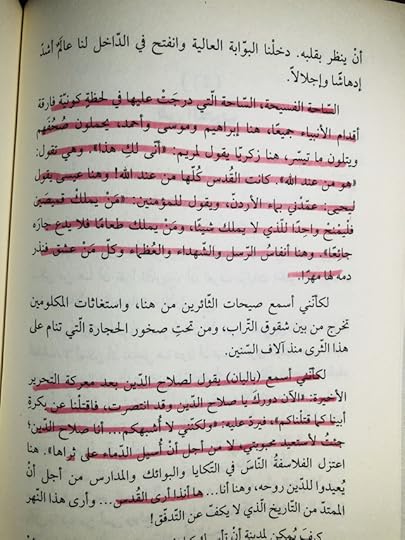 أنْ ينظر بقلبه. دخلْنا البوّابة العالية وانفتح في الدّاخل لنا عالَمٌ أشدّ
إدهاشًا وإجلالاً.
السّاحة الفسيحة، السّاحة الّتي درجَتْ عليها في لحظةٍ كونيّة فارقة
أقدام الأنبياء جميعًا، هنا إبراهيم وموسى وأحمد يحملون صُحُفَهم
ويتلون ما تيسّر، هنا زكريّا يقول لمريم: «أنّى لكِ هذا». وهي تقول:
«هو من عند الله». كانت القُدس كلّها من عند الله! وهنا عيسى يقول
ليحيى: عمّدْني بماء الأردن، ويقول للمؤمنين: «مَنْ يملك قميصَين
فلْيَمْنحْ واحدًا للّذي لا يملك شيئًا، ومَنْ يملك طعامًا فلا يدعْ جارَه
جائعًا». وهنا أنفاسُ الرّسل والشّهداء والعُظماء وكلّ مَنْ عشق فنذر
دمه لها مهرًا.
لكأنّني أسمع صيحات الثّائرين من هنا، واستغاثات المكلومين
تخرج من بين شقوق التّراب، ومن تحتِ صخور الحجارة التي تنام على
هذا الثّرى منذ آلاف السّنين.
لكأنّني أسمع (باليان) يقول لصلاح الدّين بعد معركة التّحرير
الأخيرة: «الآن دورك يا صلاح الدّين وقد انتصرت، فاقتلْنا عن بكرةِ
أبينا كما قتلْناكم»، فيردّ عليه: «ولكنّني لا أُشبهكم... أنا صلاح الدّين؛
جئتُ لأستعيد محبوبتي لا من أجل أنْ أُسيل الدّماء على ثراها». هنا
اعتزل الفلاسفةُ النّاسَ في التّكايا والبوائك والمدارس من أجل أنْ
يُعيدوا للدّين روحه، وهنا أنا... ها أنذا أرى القُدس... وأرى هذا النّهر
الممتدّ من التّاريخ الّذي لا يكفّ عن التّدفّق!
كيفَ يُمكن لمدينة أنْ